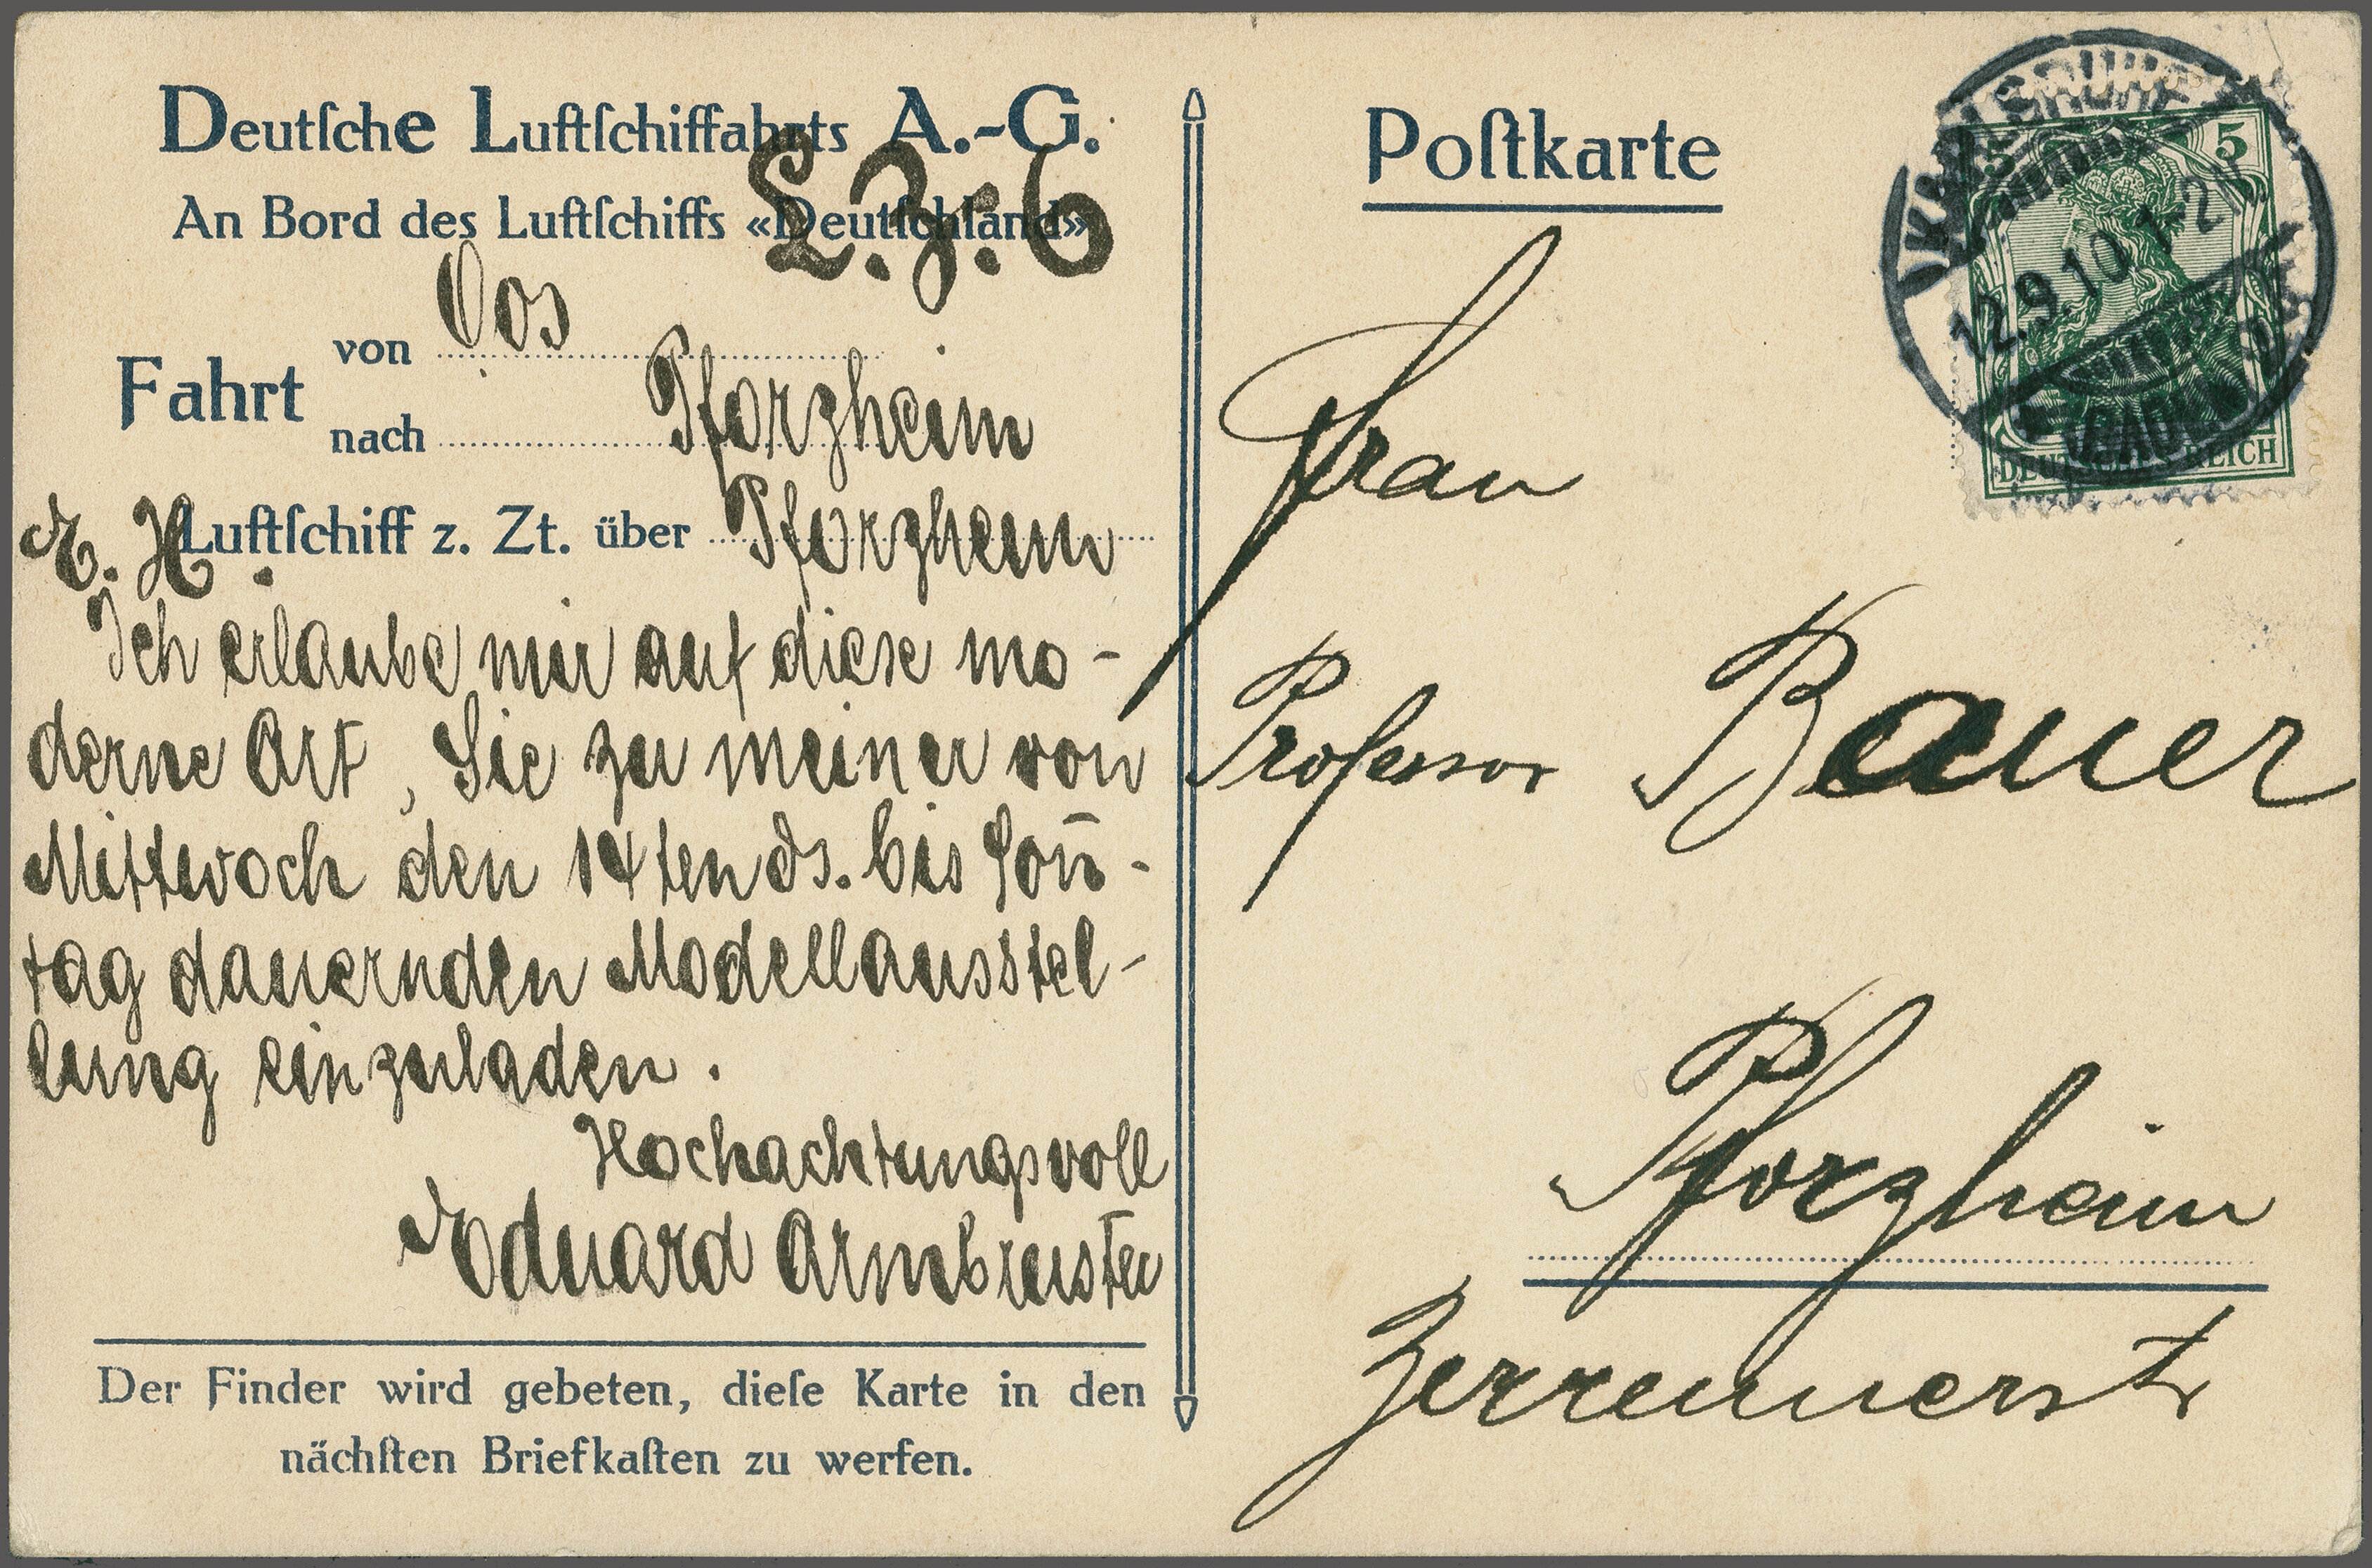 Deutſche Luftſchiffahrts A.-G.
An Bord des Luftſchiffs «Deutſchland»
L. Z. 6
Fahrt von Oos
nach Pforzheim
Luftſchiff z. Zt. über Pforzheim
E. H.
Ich erlaube mir auf diese mo-
derne Art, Sie zu meiner von
Mittwoch den 14ten ds. bis Son̄-
tag dauernden Modellausstel-
lung einzuladen.
Hochachtungsvoll
Eduard Armbruster
Der Finder wird gebeten, dieſe Karte in den
nächſten Briefkaſten zu werfen.
Poſtkarte
Frau
Professor Bauer
Pforzheim
Zerrennerstr
KARLSRUHE
12.9.10 1-2
(BADEN)
5 5
DEUTSCHES REICH